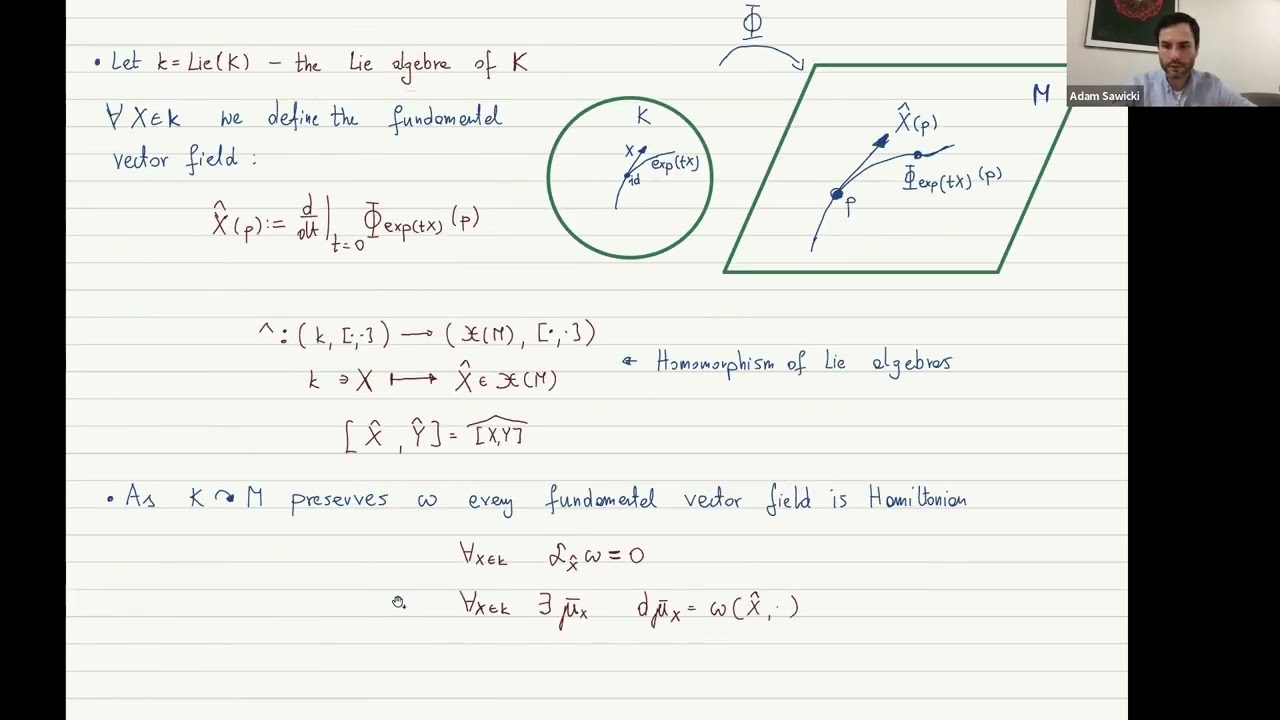 • Let k = Lie(K) – the Lie algebra of K
∀ X∈k we define the fundamental
vector field :
X̂(p) := d/dt|_{t=0} Φ_{exp(tX)}(p)
Φ
K
X
exp(tX)
id
M
X̂(p)
Φ_{exp(tX)}(p)
p
Adam Sawicki
^ : (k, [·,·]) → (𝔛(M), [·,·])
k ∋ X ↦ X̂ ∈ 𝔛(M)
← Homomorphism of Lie algebras
[X̂, Ŷ] = \widehat{[X,Y]}
• As K ↷ M preserves ω every fundamental vector field is Hamiltonian
∀_{X∈k} ℒ_{X̂} ω = 0
∀_{X∈k} ∃ μ̄_X dμ̄_X = ω(X̂, ·)